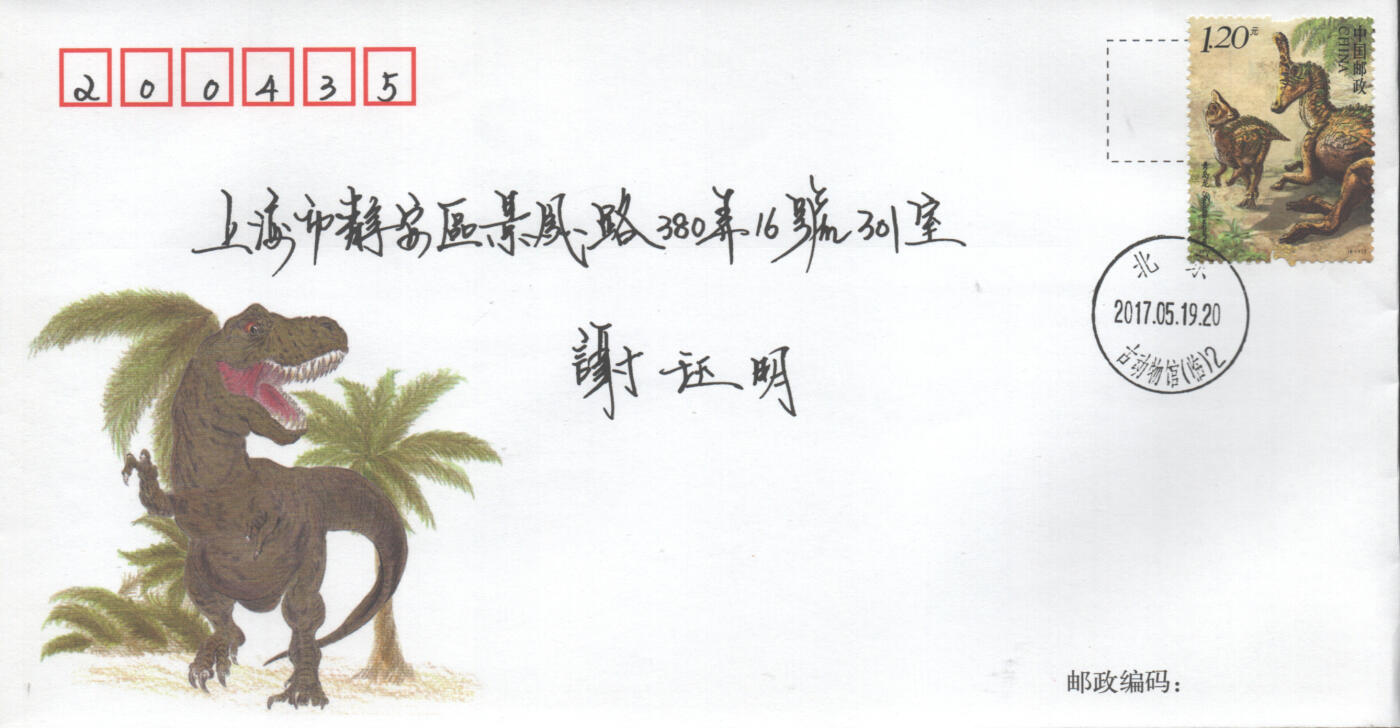 200435
1.20元
中国邮政
CHINA
上海市静安區景凤路380弄16號301室
謝珏明
北京
2017.05.19.20
古动物馆(临)2
邮政编码：